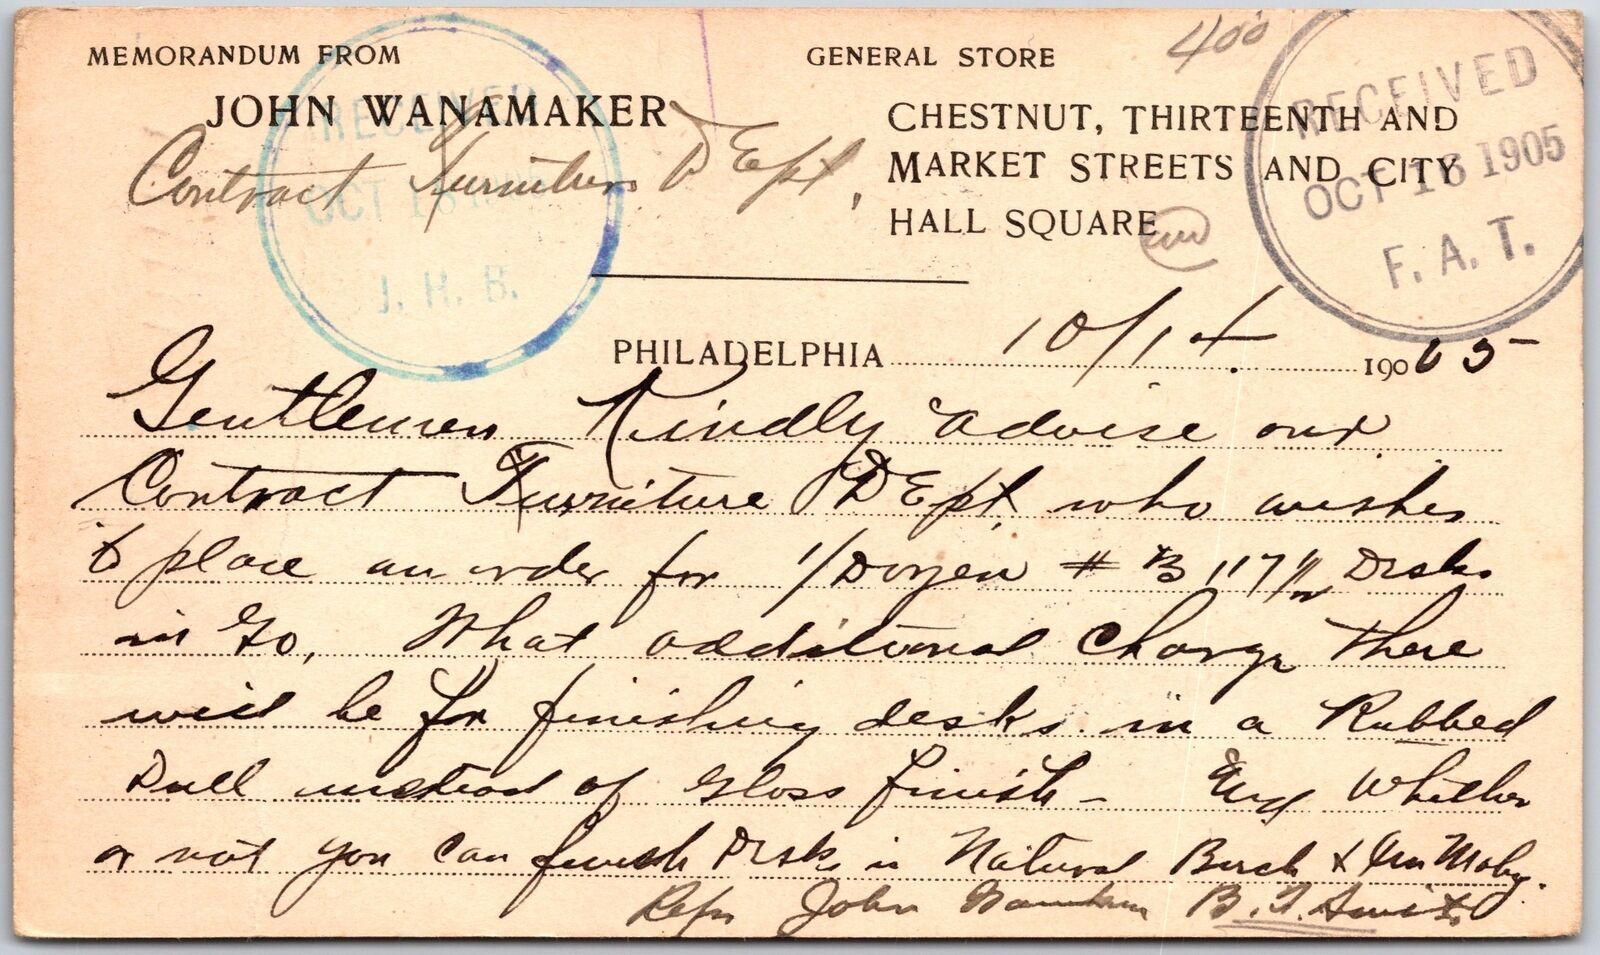 MEMORANDUM FROM
JOHN WANAMAKER
Contract Furniture DEpt,
GENERAL STORE
CHESTNUT, THIRTEENTH AND
MARKET STREETS AND CITY
HALL SQUARE
400
RECEIVED
OCT 16 1905
F. A. T.
RECEIVED
OCT 16
J. H. B.
PHILADELPHIA 10/14 1905
Gentlemen Kindly advise our
Contract Furniture DEpt, who wishes
to place an order for 1/Dozen # B 117 Desks
in Go, What additional charge there
will be for finishing desks in a Rubbed
Dull instead of Gloss finish - End Whether
or not you can finish Desks in Natural Birch & Mahy.
John Wanamaker B.